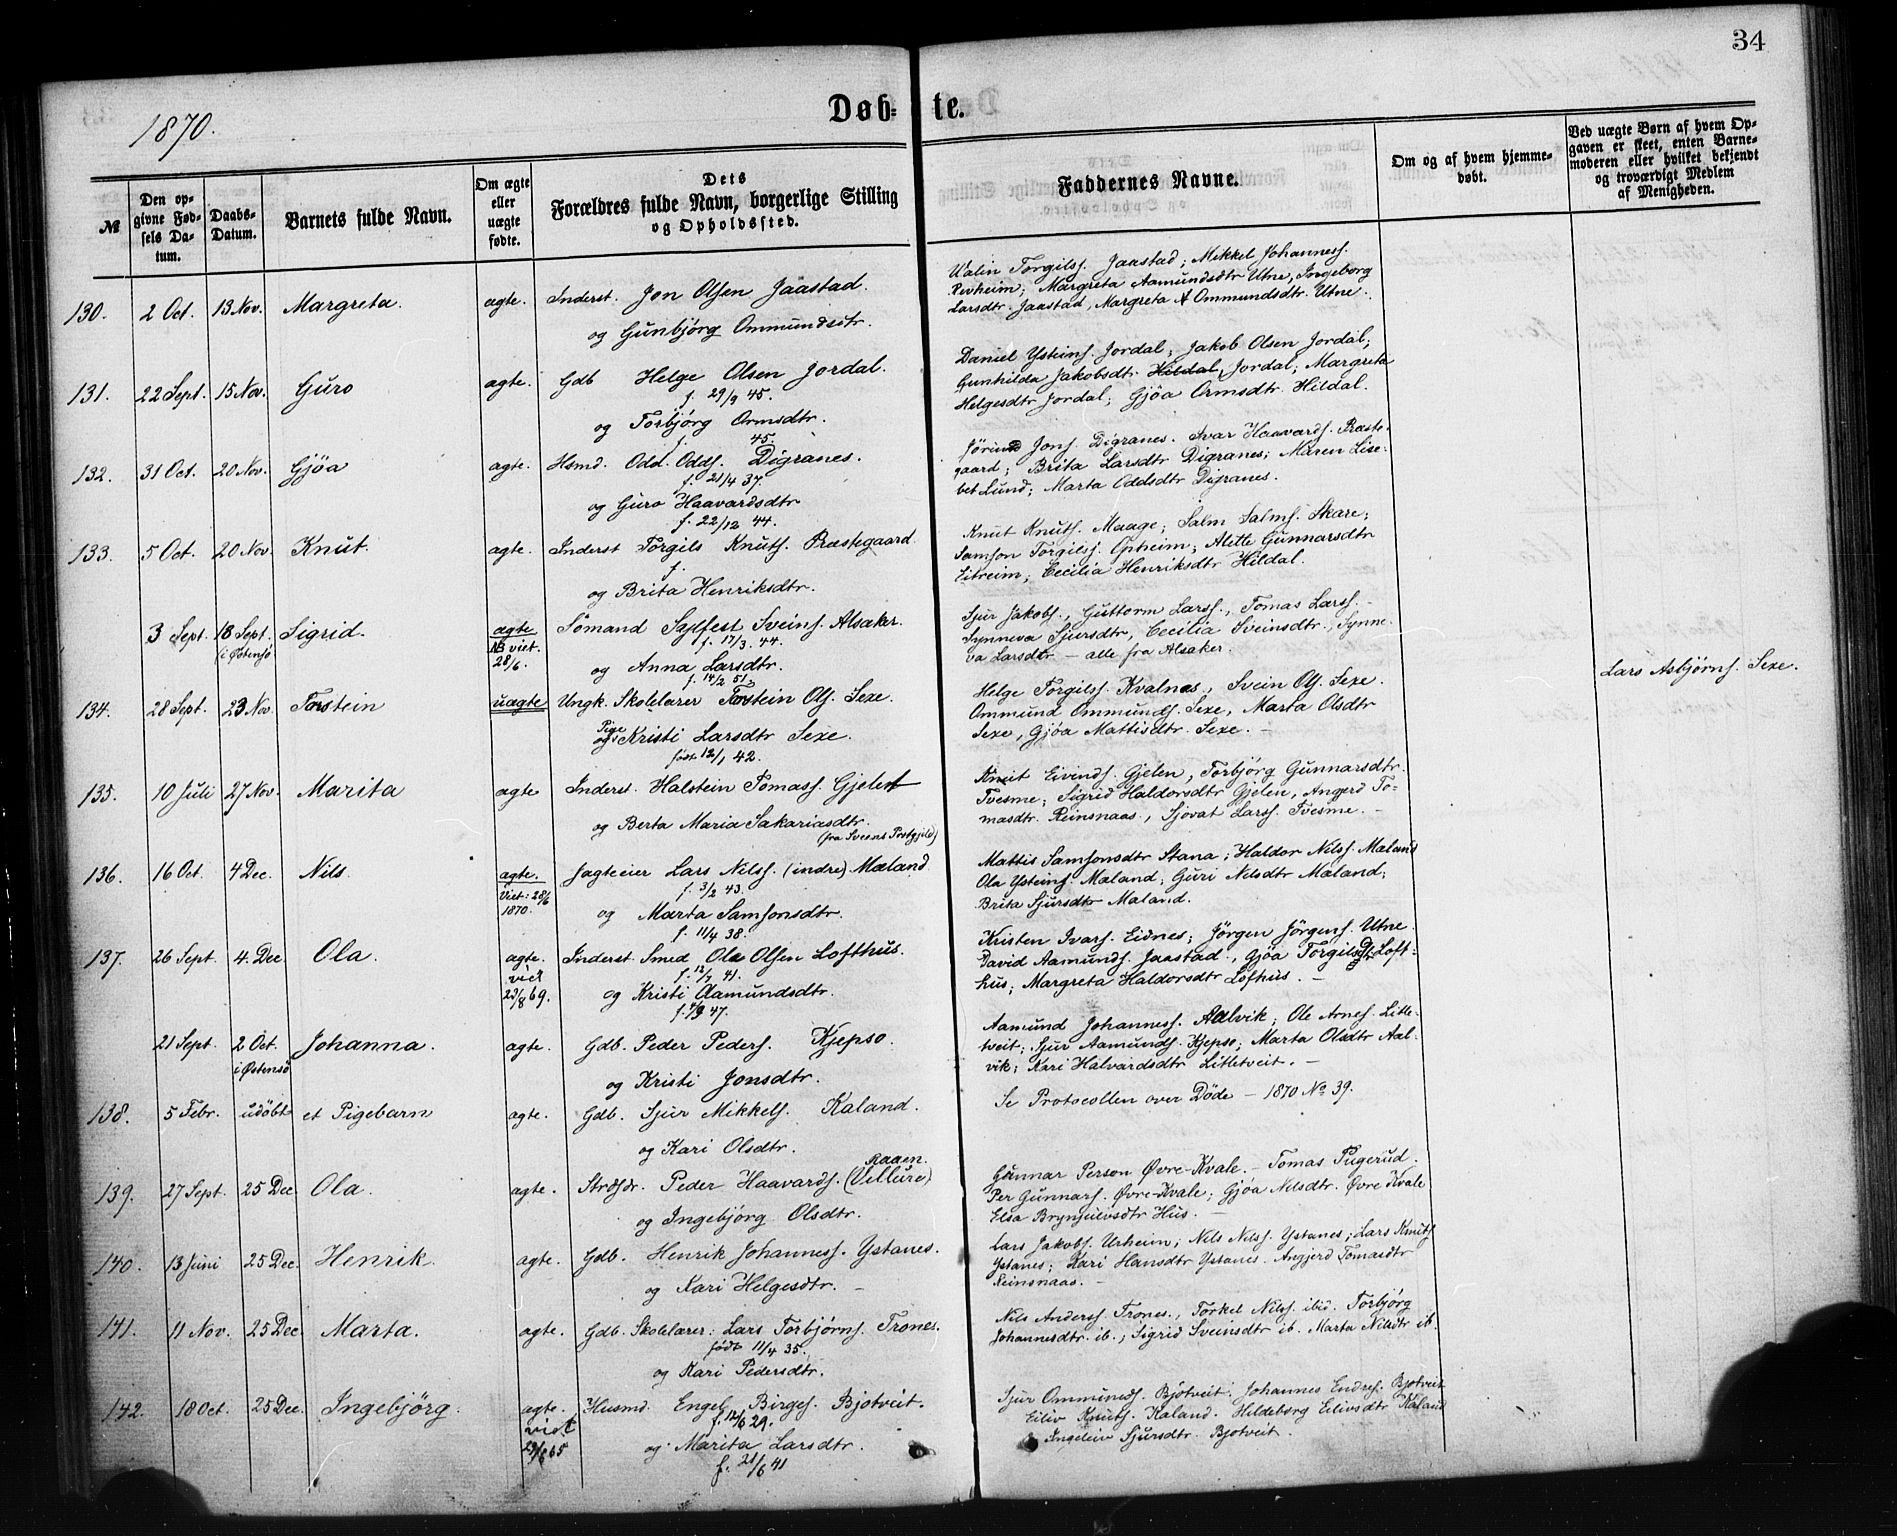 34
1870.
Døb- te.
№
Den opgivne Fødsels Datum.
Daabs-Datum.
Barnets fulde Navn.
Om ægte eller uægte fødte.
Dets Forældres fulde Navn, borgerlige Stilling og Opholdssted.
Faddernes Navne.
Om og af hvem hjemmedøbt.
Ved uægte Børn af hvem Opgaven er skeet, enten Barnemoderen eller hvilket bekjendt og troværdigt Medlem af Menigheden.
130. 2 Oct. 13 Nov. Margreta. ægte. Inderst. Jon Olsen Jaastad.
og Gunbjørg Ommundsdtr.
Torgilss. Jaastad; Mikkel Johanness.
Margreta Aamundsdtr Utne, Ingeborg
Larsdtr. Jaastad, Margreta A Ommundsdtr. Utne.
131. 22 Sept. 15 Nov. Guro ægte. Gdb Helge Olsen Jordal.
f. 29/9 45.
og Torbjørg Ormsdtr.
f. 45.
Daniel Ysteins. Jordal; Jakob Olsen Jordal;
Gunhilda Jakobsdtr Hildal, Jordal; Margreta
Helgesdtr Jordal; Gjøa Ormsdtr. Hildal.
132. 31 Oct. 20 Nov. Gjøa ægte. Hsmd. Odd. Odds. Digranes.
f. 21/4 37
og Guro Haavardsdtr
f. 22/12 44.
Jørund Jons. Digranes. Ivar Haavards. Præste-
gaard; Brita Larsdtr Digranes; Maren Lise-
bet Lund; Marta Oddsdtr Digranes.
133. 5 Oct. 20 Nov. Knut. ægte. Inderst Torgils Knuts. Præstegaard
f.
og Brita Henriksdtr.
Knut Knuts. Maage; Salm Salms. Skare;
Samson Torgilss. Opheim; Alette Gunnarsdtr
Eitreim; Cecilia Henriksdtr Hildal.
3 Sept. 18 Sept. i Østensø Sigrid. ægte NB viet. 28/6. Sømand Sjlfest Sveins. Alsaker.
f. 17/3. 44.
og Anna Larsdtr.
f. 14/2 51.
Sjur Jakobs., Guttorm Larss., Tomas Larss.
Synneva Sjursdtr, Cecilia Sveinsdtr., Synne-
va Larsdtr – alle fra Alsaker.
134. 28 Sept. 23 Nov. Torstein uægte Ungk. Skolelærer Torstein Ols. Sexe.
Pige
og Kristi Larsdtr Sexe.
født 12/1 42.
Helge Torgilss. Kvalnes, Svein Ols. Sexe.
Ommund Ommunds. Sexe, Marta Olsdtr
Sexe, Gjøa Mattisdtr. Sexe. –
Lars Asbjørns. Sexe.
135. 10 Juli 27 Nov. Marita ægte Inderst. Halstein Tomass. Gjelen
og Berta Maria Sakariasdtr.
(fra Sveens Prstgjeld)
Knut Eivinds. Gjelen, Torbjørg Gunnarsdtr.
Tvesme; Sigrid Haldorsdtr Gjelen, Angerd To-
masdtr. Reinsnaas., Sjovat Larss. Tvesme. –
136. 16 Oct. 4 Dec. Nils. ægte. Viet: 28/6 1870. Jagteeier Lars Nilss. (indre) Mæland
f. 3/2 43.
og Marta Samsonsdtr.
f. 11/4 38.
Mattis Samsonsdtr Stana; Haldor Nilss. Mæland
Ola Ysteins. Mæland; Guri Nilsdtr Mæland;
Brita Sjursdtr Mæland.
137. 26 Sept. 4. Dec Ola. ægte. viet 23/8 69. Inderst. Smed Ola Olsen Lofthus.
f. 12/7 41.
og Kristi Aamundsdtr.
f. 4/9 47.
Kristen Ivars. Eidnes; Jørgen Jørgens. Utne.
David Aamunds. Jaastad., Gjøa Torgilsdtr. Loft-
hus; Margreta Haldorsdtr Lofthus. –
21 Sept. 2 Oct. i Østensø Johanna. ægte. Gdb. Peder Peders. Kjepso.
og Kristi Jonsdtr.
Aamund Johanness. Aalvik; Ole Arnes. Litle-
tveit; Sjur Aamunds. Kjepso; Marta Olsdtr Aal-
vik; Kari Halvardsdtr Litletveit. –
138. 5 Febr. udøbt et Pigebarn ægte. Gdb. Sjur Mikkels. Kaland.
og Kari Olsdtr.
Se Protocollen over Døde – 1870 No 39.
139. 27 Sept. 25 Dec Ola. ægte. Strdsdr. Peder Haavards. (Vellure)
Raaen.
og Ingebjørg Olsdtr.
Gunnar Person Øvre-Kvale. – Tomas Pugerud.
Per Gunnars. Øvre-Kvale; Gjøa Nilsdtr. Øvre Kvale
Elsa Brynjulvsdtr Hus. –
140. 13 Juni 25 Dec. Henrik. ægte. Gdb. Henrik Johanness. Ystanes.
og Kari Helgesdtr. –
Lars Jakobs. Urheim; Nils Nilss. Ystanes; Lars Knuts
Ystanes; Kari Hansdtr Ystanes. Angjerd Tomasdtr
Reinsnaas. –
141. 11 Nov. 25 Dec Marta. ægte. Gdb. Skolelærer: Lars Torbjørns. Trones.
født 11/4 35.
og Kari Pedersdtr.
Nils Anderss. Trones., Torkel Nilss. ibid. Torbjørg
Johannesdtr. ib.; Sigrid Sveinsdtr ib. Marta Nilsdtr ib.
142. 18 Oct. 25 Dec. Ingebjørg. ægte. vidt 29/6 65 Husmd. Engel Birges. Bjotveit.
f. 12/6 29.
og Marita Larsdtr.
f. 21/6 41
Sjur Ommunds. Bjotveit. Johannes Endres. Bjotveit
Eiliv Knuts. Kaland. Hildeborg Eilivsdtr Kaland
Ingeleiv Sjursdtr. Bjotveit.